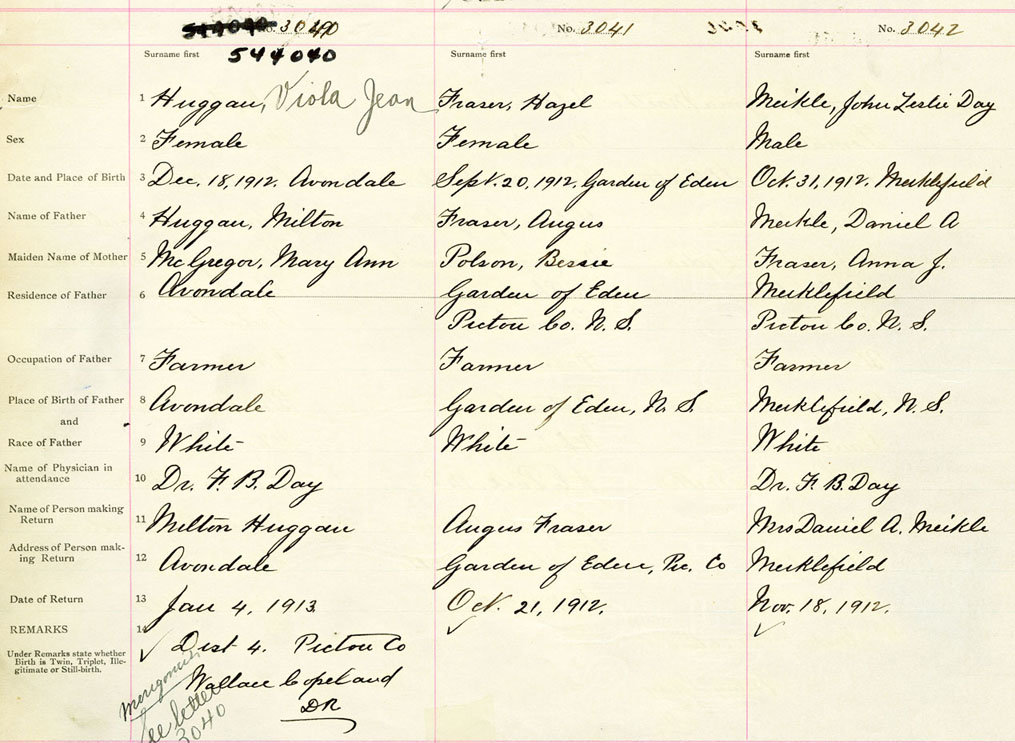 No. 3040 No. 3041 No. 3042
Surname first 544040 Surname first Surname first
Name 1 Huggan, Viola Jean Fraser, Hazel Meikle, John Leslie Day
Sex 2 Female Female Male
Date and Place of Birth 3 Dec. 18, 1912. Avondale Sept. 20, 1912. Garden of Eden Oct. 31, 1912. Meiklefield
Name of Father 4 Huggan, Milton Fraser, Angus Meikle, Daniel A
Maiden Name of Mother 5 McGregor, Mary Ann Polson, Bessie Fraser, Anna J.
Residence of Father 6 Avondale Garden of Eden Meiklefield
Pictou Co. N. S. Pictou Co. N. S.
Occupation of Father 7 Farmer Farmer Farmer
Place of Birth of Father 8 Avondale Garden of Eden, N. S. Meiklefield, N. S.
and
Race of Father 9 White White White
Name of Physician in
attendance 10 Dr. F. B. Day Dr. F. B. Day
Name of Person making
Return 11 Milton Huggan Angus Fraser Mrs Daniel A. Meikle
Address of Person mak-
ing Return 12 Avondale Garden of Eden, Pic. Co Meiklefield
Date of Return 13 Jan 4, 1913 Oct. 21, 1912. Nov. 18, 1912.
REMARKS 14 Dist 4. Pictou Co
Under Remarks state whether
Birth is Twin, Triplet, Ille-
gitimate or Still-birth.
Wallace Copeland
DR
see letter
3040